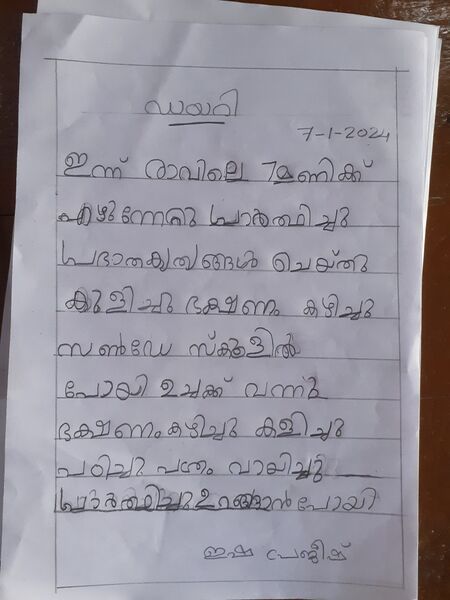 ഡയറി
7-1-2024
ഇന്ന് രാവിലെ 7മണിക്ക്
എഴുന്നേറ്റു പ്രാർത്ഥിച്ചു
പ്രഭാതകൃത്യങ്ങൾ ചെയ്തു
കുളിച്ചു ഭക്ഷണം കഴിച്ചു
സൺഡേ സ്കൂളിൽ
പോയി ഉച്ചക്ക് വന്ന്
ഭക്ഷണം കഴിച്ചു കളിച്ചു
പഠിച്ചു പത്രം വായിച്ചു
പ്രാർത്ഥിച്ചു ഉറങ്ങാൻ പോയി
ഇഷ